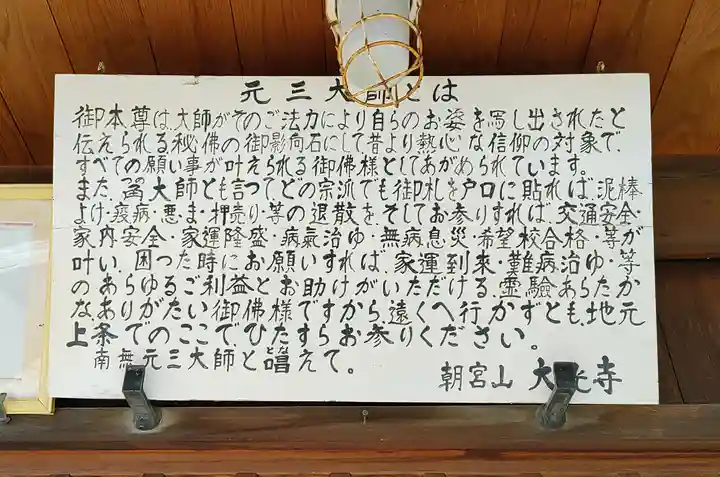 元三大師とは
御本尊は、大師がそのご法力により自らのお姿を写し出されたと
伝えられる秘佛の御影向石にして昔より熱心な信仰の対象で、
すべての願い事が叶えられる御佛様としてあがめられています。
また、角大師とも言つてどの宗派でも御札を戸口に貼れば、泥棒
よけ・疫病・悪・ま・押売り・等の退散を、そしてお参りすれば、交通安全・
家内安全・家運隆盛・病氣治ゆ・無病息災・希望校合格・等が
叶い、困った時にお願いすれば、家運到来・難病治ゆ・等
のあらゆるご利益とお助けがいただける、霊験あらたか
なありがたい御佛様ですから、遠くへ行かずとも、地元
上条でのここで、ひたすらお参りください。
南無元三大師と唱えて。
朝宮山 大光寺